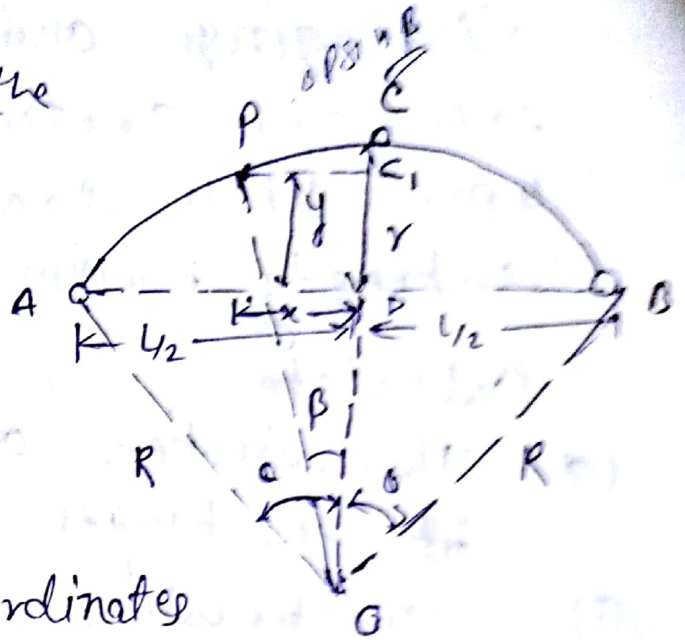 the
P
C
C₁
y
r
A
x
D
B
L/2
L/2
β
R
θ
θ
R
ordinates
O